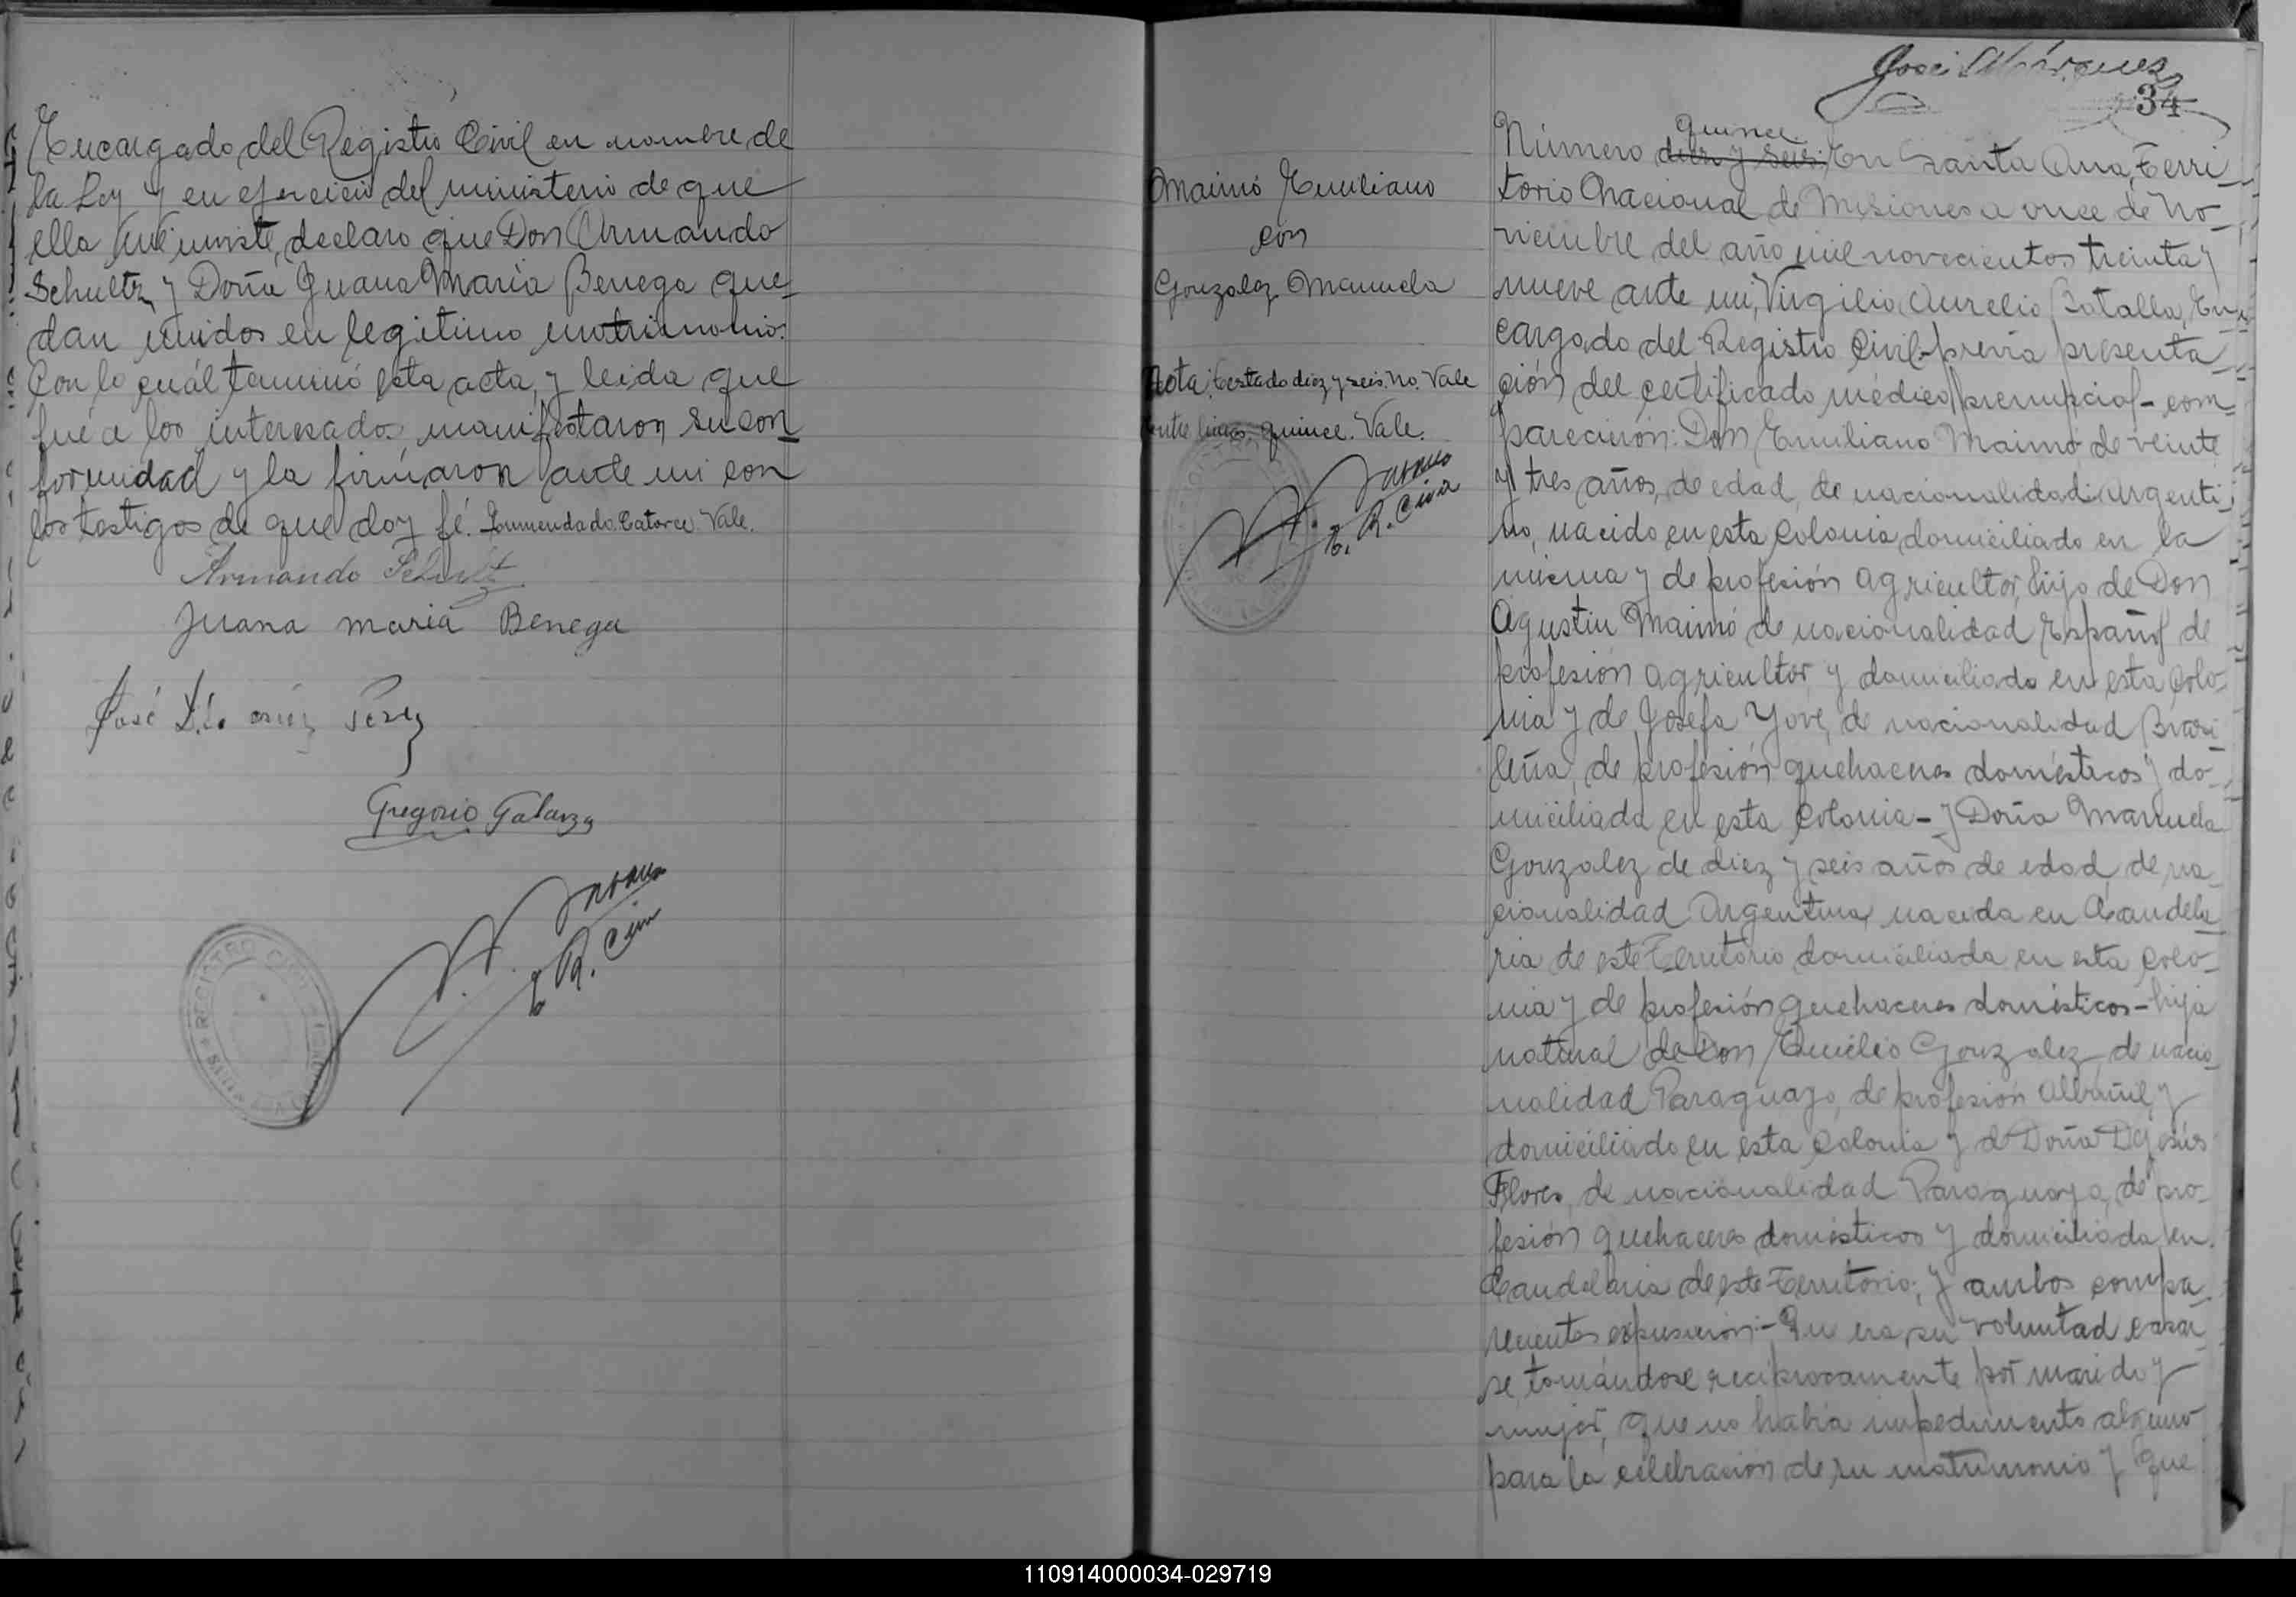 Encargado del Registro Civil en nombre de
la Ley y en ejercicio del ministerio de que
ella me inviste, declaro que Don Armando
Schultz y Doña Juana Maria Benega que-
dan unidos en legitimo matrimonio.
Con lo cuál terminó esta acta, y leida que
fué a los interesados, manifestaron su con-
formidad y la firmaron ante mi con
los testigos de que doy fé. Enmendado. Catorce. Vale.
Armando Schultz
Juana maria Benega
José Perez
Gregorio Galarza
E. R. Civil
REGISTRO CIVIL
Maimó Emiliano
con
Gonzalez Manuela
Nota: testado diez y seis. No. Vale
entre lineas, quince. Vale.
E. R. Civil
José Márquez
34
quince.
Número diez y seis. En Santa Ana, Terri-
torio Nacional de Misiones a once de No-
viembre del año mil novecientos treinta y
nueve ante mi, Virgilio Aurelio Batalla, En-
cargado del Registro Civil-previa presenta-
ción del certificado médico prenupcial- com-
parecieron: Don Emiliano Maimó de veinte
y tres años, de edad, de nacionalidad Argenti-
no, nacido en esta Colonia, domiciliado en la
misma y de profesión agricultor, hijo de Don
Agustin Maimó de nacionalidad Español de
profesión agricultor y domiciliado en esta Colo-
nia y de Josefa Yove, de nacionalidad Brasi-
leña, de profesión quehaceres domésticos y do-
miciliada en esta Colonia- y Doña Manuela
Gonzalez de diez y seis años de edad, de na-
cionalidad Argentina, nacida en Candela-
ria de este Territorio domiciliada en esta Colo-
nia y de profesión quehaceres domésticos-hija
natural de Don Emilio Gonzalez, de nacio-
nalidad Paraguayo, de profesión Albañil, y
domiciliado en esta Colonia y de Doña Dejesús
Flores, de nacionalidad Paraguaya, de pro-
fesión quehaceres domésticos y domiciliada en
Candelaria de este Territorio; y ambos compa-
recientes expusieron:- Que era su voluntad casar-
se, tomándose reciprocamente por marido y
mujer, que no habia impedimento alguno
para la celebración de su matrimonio y que
110914000034-029719